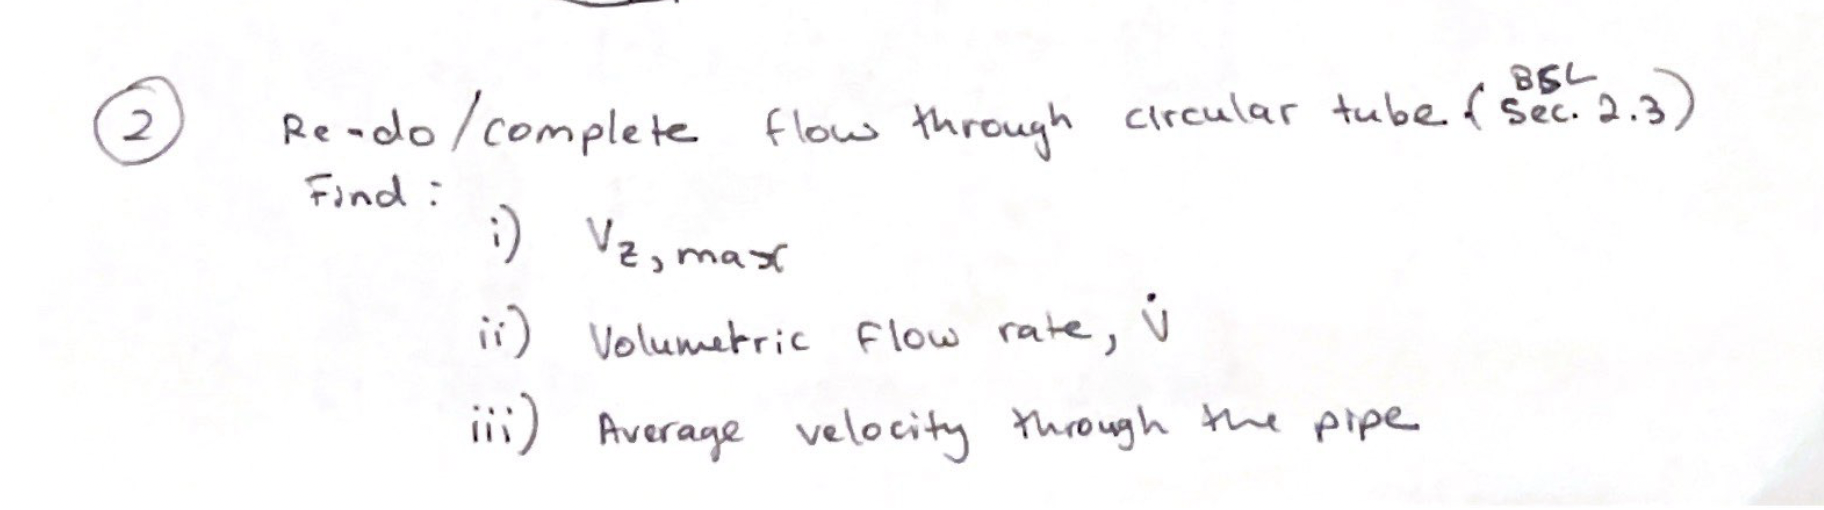 2 Re-do/complete flow through circular tube (BSL Sec. 2.3)
Find:
i) Vz, max
ii) Volumetric flow rate, V̇
iii) Average velocity through the pipe